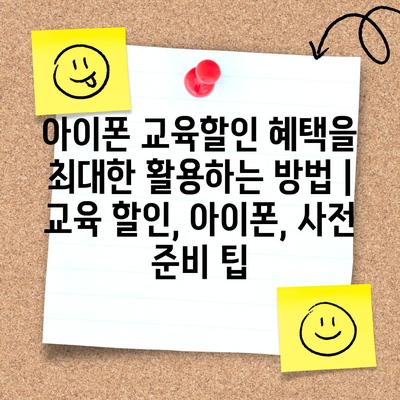 아이폰 교육할인 혜택을
최대한 활용하는 방법 |
교육 할인, 아이폰, 사전
준비 팁